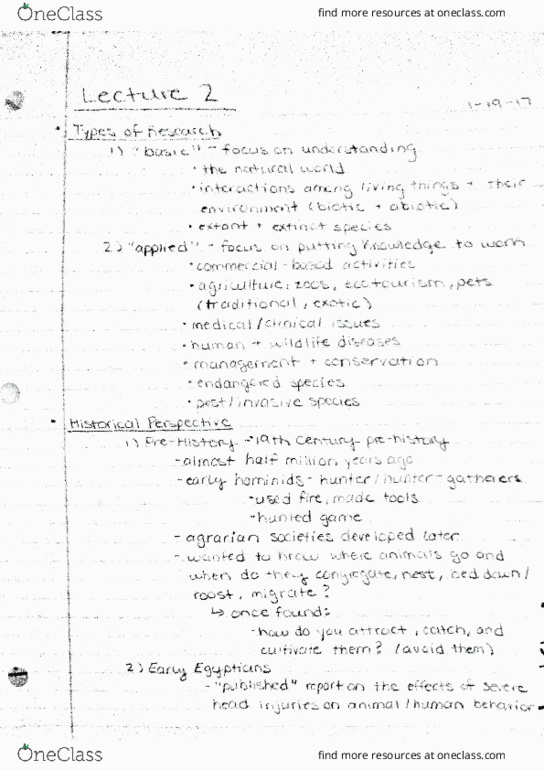 OneClass
find more resources at oneclass.com
Lecture 2
1-19-17
• Types of Research
1) "basic" - focus on understanding
• the natural world
• interactions among living things + their
environment (biotic + abiotic)
• extant + extinct species
2) "applied" - focus on putting knowledge to work
• commercial-based activities
• agriculture, zoos, ecotourism, pets
(traditional, exotic)
• medical/clinical issues
• human + wildlife diseases
• management + conservation
• endangered species
• pest/invasive species
• Historical Perspective
1) Pre-History - 19th Century pre-history
- almost half million years ago
- early hominids - hunter/hunter-gatherers
• used fire, made tools
- hunted game
- agrarian societies developed later
- wanted to know where animals go and
when do they congregate, nest, bed down/
roost, migrate?
↳ once found:
- how do you attract, catch, and
cultivate them? (avoid them)
2) Early Egyptians
- "published" report on the effects of severe
head injuries on animal/human behavior
OneClass
find more resources at oneclass.com